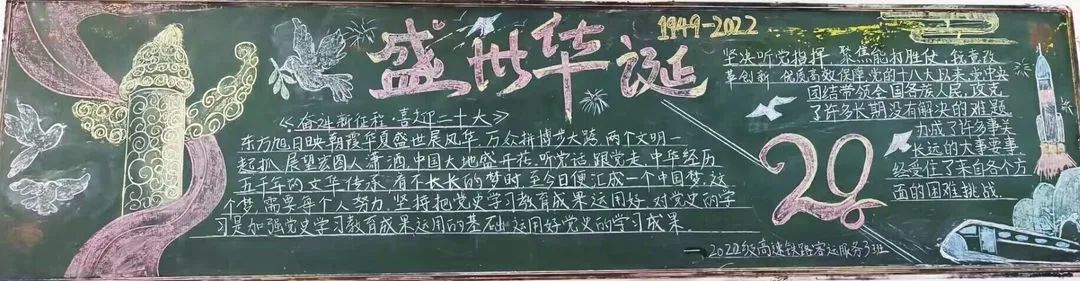 盛世华诞
1949-2022
《奋进新征程·喜迎二十大》
东方旭日映朝霞华夏盛世展风华,万众拼搏步大跨,两个文明一
起抓,展望宏图人潇洒,中国大地盛开花,听党话,跟党走,中华经历
五千年的文华传承,有不长长的梦时,至今日便汇成一个中国梦,这
个梦,需要每个人努力,坚持把党史学习教育成果运用好,对党史的学
习是加强党史学习教育成果运用的基础,运用好党史的学习成果.
20
坚决听党指挥,聚焦能打胜仗,锐意改
革创新,优质高效保障党的十八大以来,党中央
团结带领全国各族人民,攻克
了许多长期没有解决的难题
办成了许多事关
长远的大事要事
经受住了来自各个方
面的困难挑战
2022级高速铁路客运服务3班